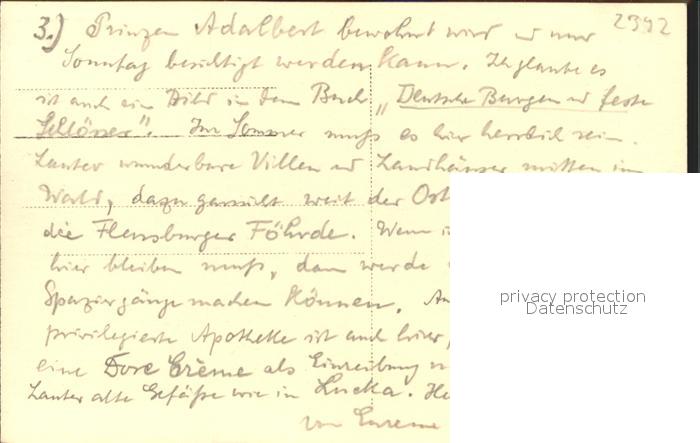 3.) Prinzen Adalbert bewohnt wird u nur 2392
Sonntag besichtigt werden kann. Ich glaube es
ist auch ein Bild in dem Buch „Deutsche Burgen u feste
Schlösser". Im Sommer muß es hier herrlich sein.
Lauter wunderbare Villen u Landhäuser mitten im
Wald, dazu weit der Ost
die Flensburger Föhrde. Wenn i
hier bleiben muß, dann werde
Spaziergänge machen können. An
privilegierte Apotheke ist auch hier,
eine Creme als Einreibung
Lauter alte Gefäße wie in Lucka. He
von
privacy protection
Datenschutz